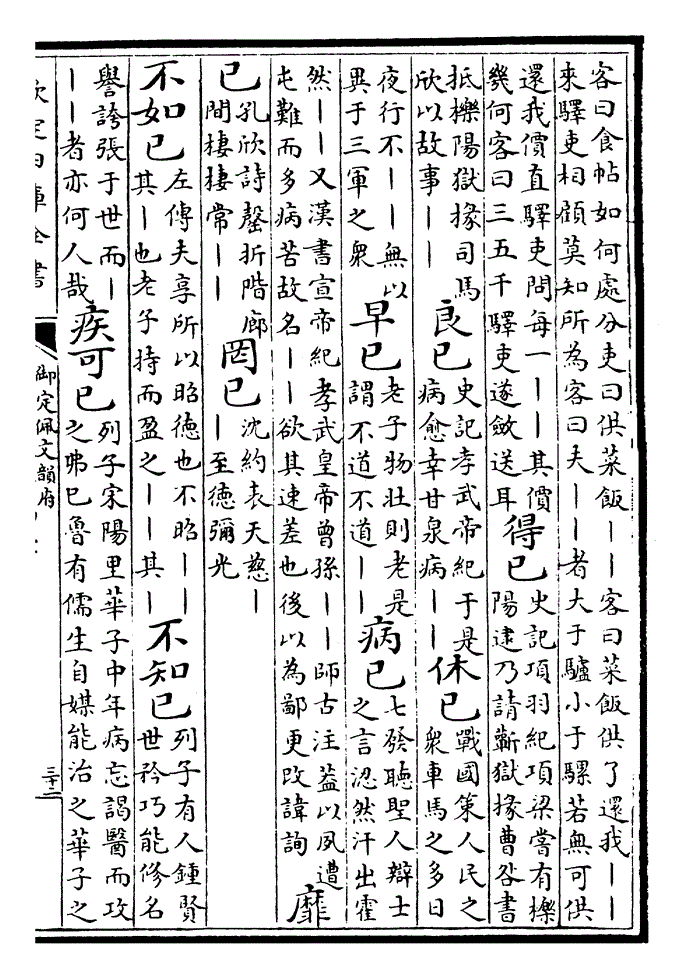 客曰食帖如何處分吏曰供菜飯｜｜客曰菜飯供了還我｜｜
來驛吏相顧莫知所為客曰夫｜｜者大于驢小于騾若無可供
還我價直驛吏問每一｜｜其價
幾何客曰三五千驛吏遂斂送耳
得已
史記項羽紀項梁嘗有櫟
陽逮乃請蘄獄掾曹咎書
抵櫟陽獄掾司馬
欣以故事｜｜
良已
史記孝武帝紀于是
病愈幸甘泉病｜｜
休已
戰國策人民之
衆車馬之多日
夜行不｜｜無以
異于三軍之衆
早已
老子物壯則老是
謂不道不道｜｜
病已
七發聽聖人辯士
之言涊然汗出霍
然｜｜又漢書宣帝紀孝武皇帝曾孫｜｜師古注葢以夙遭
屯難而多病苦故名｜｜欲其速差也後以為鄙更改諱詢
靡
已
孔欣詩罄折階廊
間棲棲常｜｜
罔已
沈約表天慈｜
｜至德彌光
不如已
左傳夫享所以昭德也不昭｜｜
其｜也老子持而盈之｜｜其｜
不知已
列子有人鍾賢
世矜巧能修名
譽誇張于世而｜
｜｜者亦何人哉
疾可已
列子宋陽里華子中年病忘謁醫而攻
之弗已魯有儒生自媒能治之華子之
欽定四庫全書
御定佩文韻府
三十二